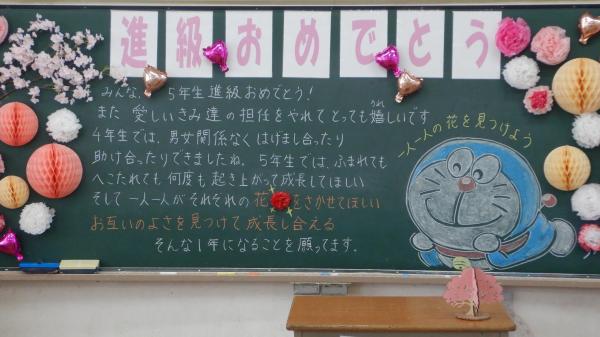 進級おめでとう
みんな、5年生進級おめでとう！
また 愛しいきみ達の担任をやれてとっても嬉しいです
うれ
4年生では、男女関係なくはげまし合ったり
助け合ったりできましたね。5年生では、ふまれても
へこたれても 何度も起き上がって成長してほしい
そして一人一人がそれぞれの花をさかせてほしい
お互いのよさを見つけて成長し合える
そんな1年になることを願ってます。
一人一人の花を見つけよう